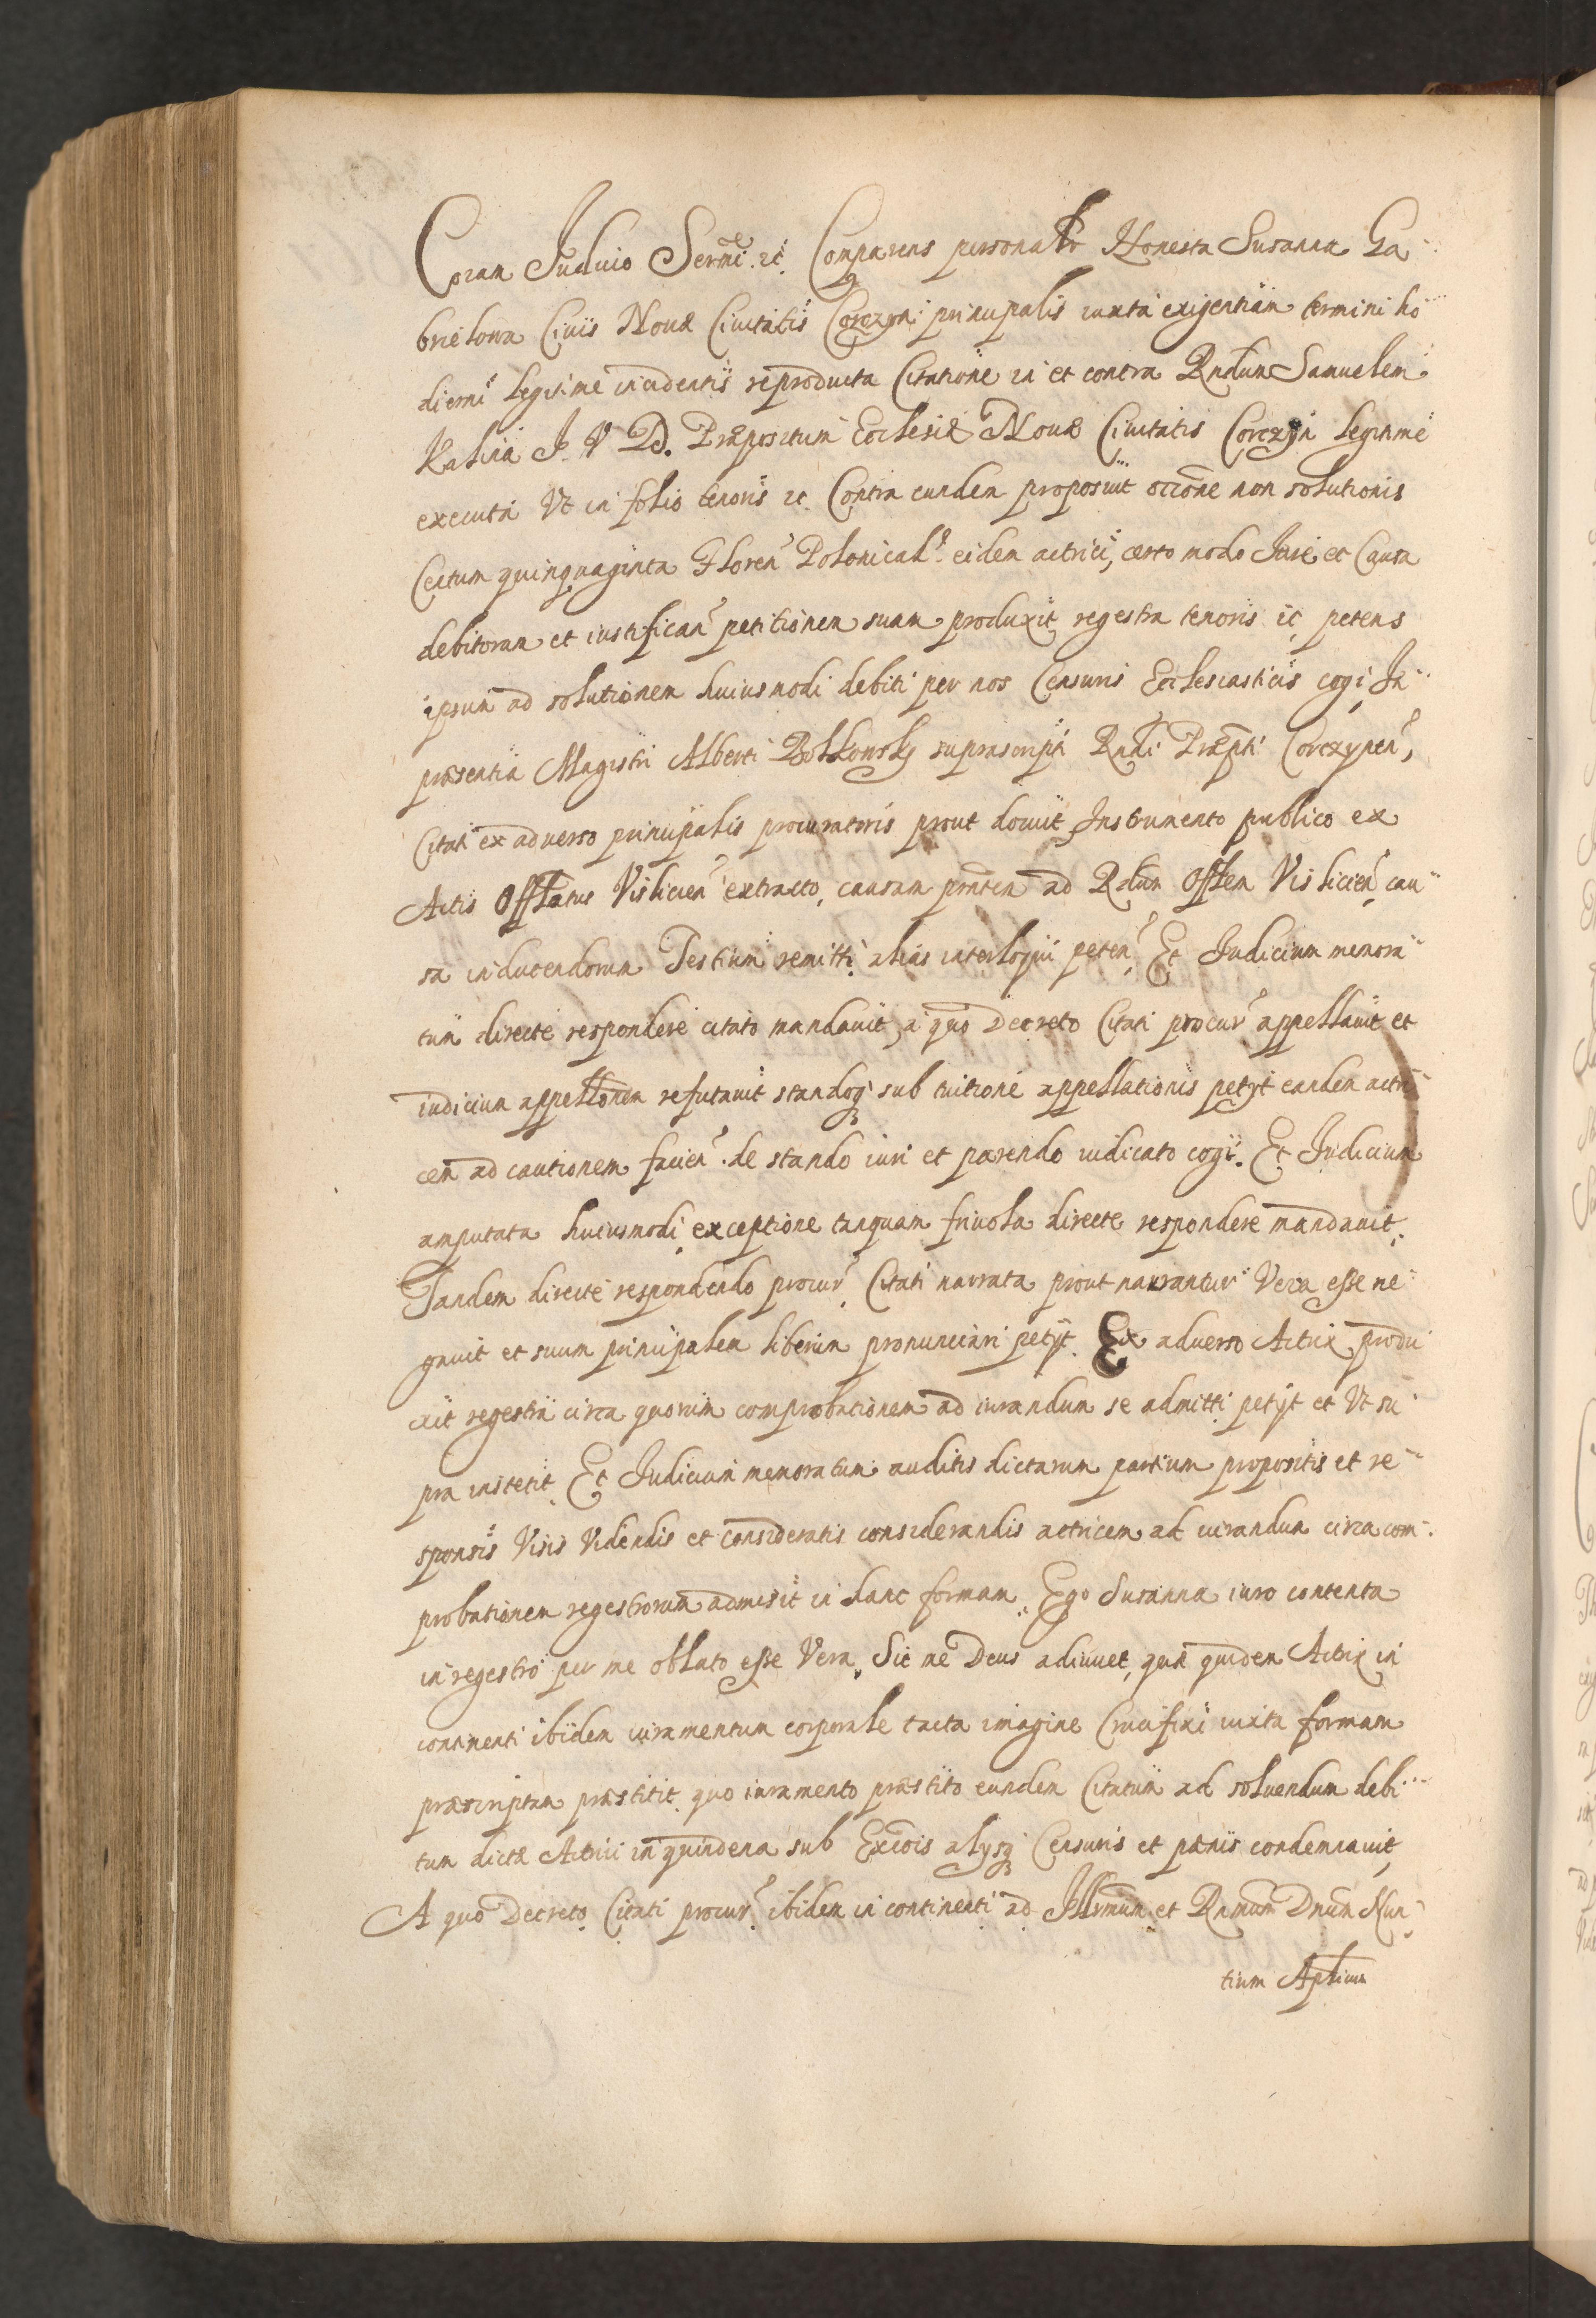 Coram Iudicio Sermi etc. Comparens personalr Honesta Susanna Ga-
brielowa Ciuis Nouæ Ciuitatis Corczyn principalis iuxta exigentiam termini ho-
dierni legitime incidentis reproducta Citatione in et contra Rndum Samuelem
Kalina I. V. D. Præpositum Ecclesiæ Nouæ Ciuitatis Corczyn legitime
executa Vt in folio tenoris etc. Contra eundem proposuit occõne non solutionis
Centum quinquaginta Floren Polonical. eidem actrici, certo modo Iure et Causa
debitorum et iustifican petitionem suam produxit regestra tenoris etc. petens
ipsum ad solutionem huiusmodi debiti per nos Censuris Ecclesiasticis cogi, In
præsentia Magistri Alberti Bolkowsky suprascripti Rndi Præpti Corczynen,
Citati ex aduerso principalis procuratoris prout docuit Instrumento publico ex
Actis Offlatus Vislicien extracto, causam pñtem ad Rdum Offlem Vislicien cau-
sa inducendorum Testium remitti alias interloqui peten. Et Iudicium memora-
tum directe respondere citato mandauit, a quo Decreto Citati procur appellauit et
iudicium appellonem refutauit standoq; sub tuitione appellationis petyt eandem actri-
cem ad cautionem facien. de stando iuri et parendo iudicato cogi. Et Iudicium
amputata huiusmodi exceptione tanquam friuola directe respondere mandauit.
Tandem directe respondendo procur Citati narrata prout narrantur Vera esse ne-
gauit et suum principalem liberum pronunciari petyt. Ex aduerso Actrix produ-
xit regestra circa quorum comprobationem ad iurandum se admitti petyt et Vt su-
pra institit. Et Iudicium memoratum auditis dictarum partium propositis et re-
sponsis Visis Videndis et consideratis considerandis actricem ad iurandum circa com-
probationem regestrorum admisit in hanc formam. Ego Susanna iuro contenta
in regestro per me oblato esse Vera, Sic me Deus adiuuet, quæ quidem Actrix in
continenti ibidem iuramentum corporale tacta imagine Crucifixi iuxta formam
præscriptam præstitit, quo iuramento præstito eundem Citatum ad soluendum debi-
tum dictæ Actrici in quindena sub Excõis alysq; Censuris et pænis condemnauit,
A quo Decreto Citati procur ibidem in continenti ad Illrmum et Rnmum Dnum Nun-
tium Aplicum